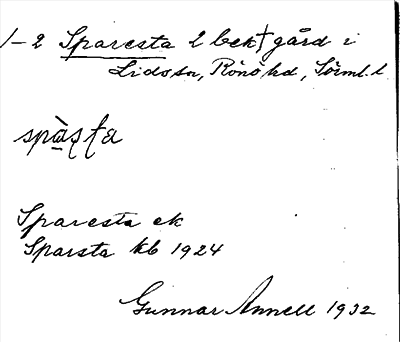 1-2 Sparesta 2 bek†gård i
Lidosn, Rönö hd, Sörml. l.
spàsta
Sparesta ek
Sparsta kb 1924
Gunnar Annell 1932